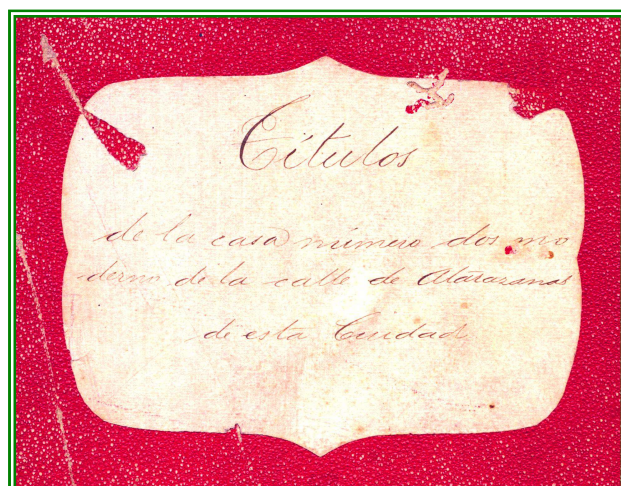 Títulos
de la casa número dos mo
derno de la calle de Atarazanas
de esta Ciudad